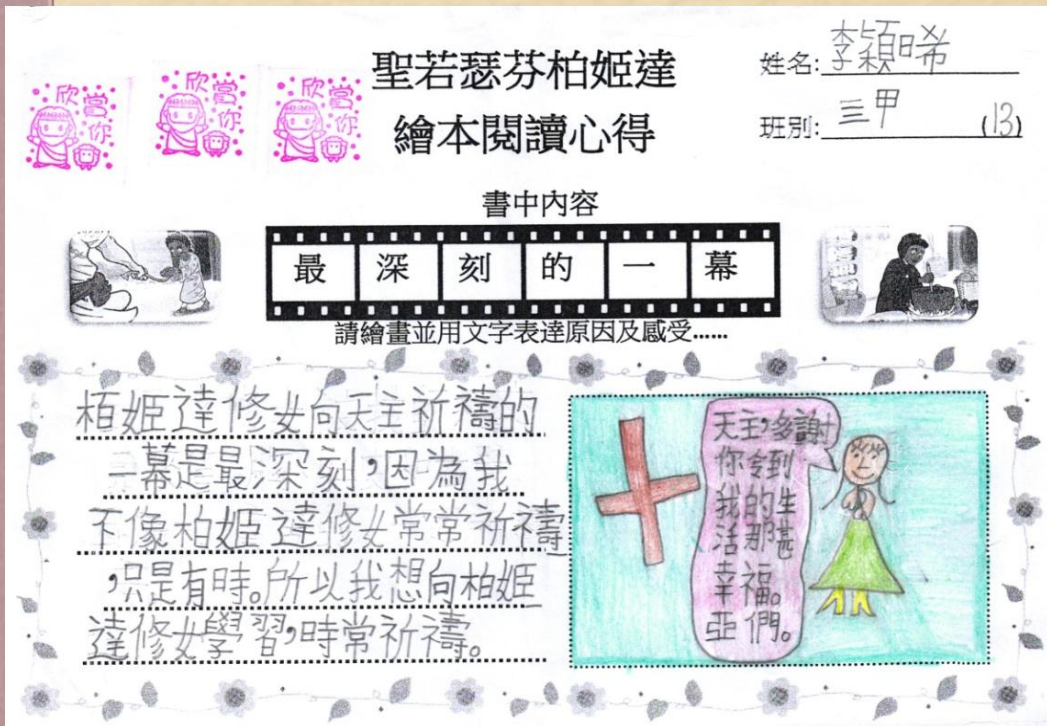 欣賞你
欣賞你
欣賞你
聖若瑟芬柏姬達
繪本閱讀心得
姓名:李穎晞
班別:三甲 (13)
書中內容
最深刻的一幕
請繪畫並用文字表達原因及感受......
栢姬達修女向天主祈禱的
一幕是最深刻,因為我
不像柏姬達修女常常祈禱
,只是有時。所以我想向柏姬
達修女學習,時常祈禱。
天主,多謝
你令到
我的生
活那甚
幸福。
亞們。